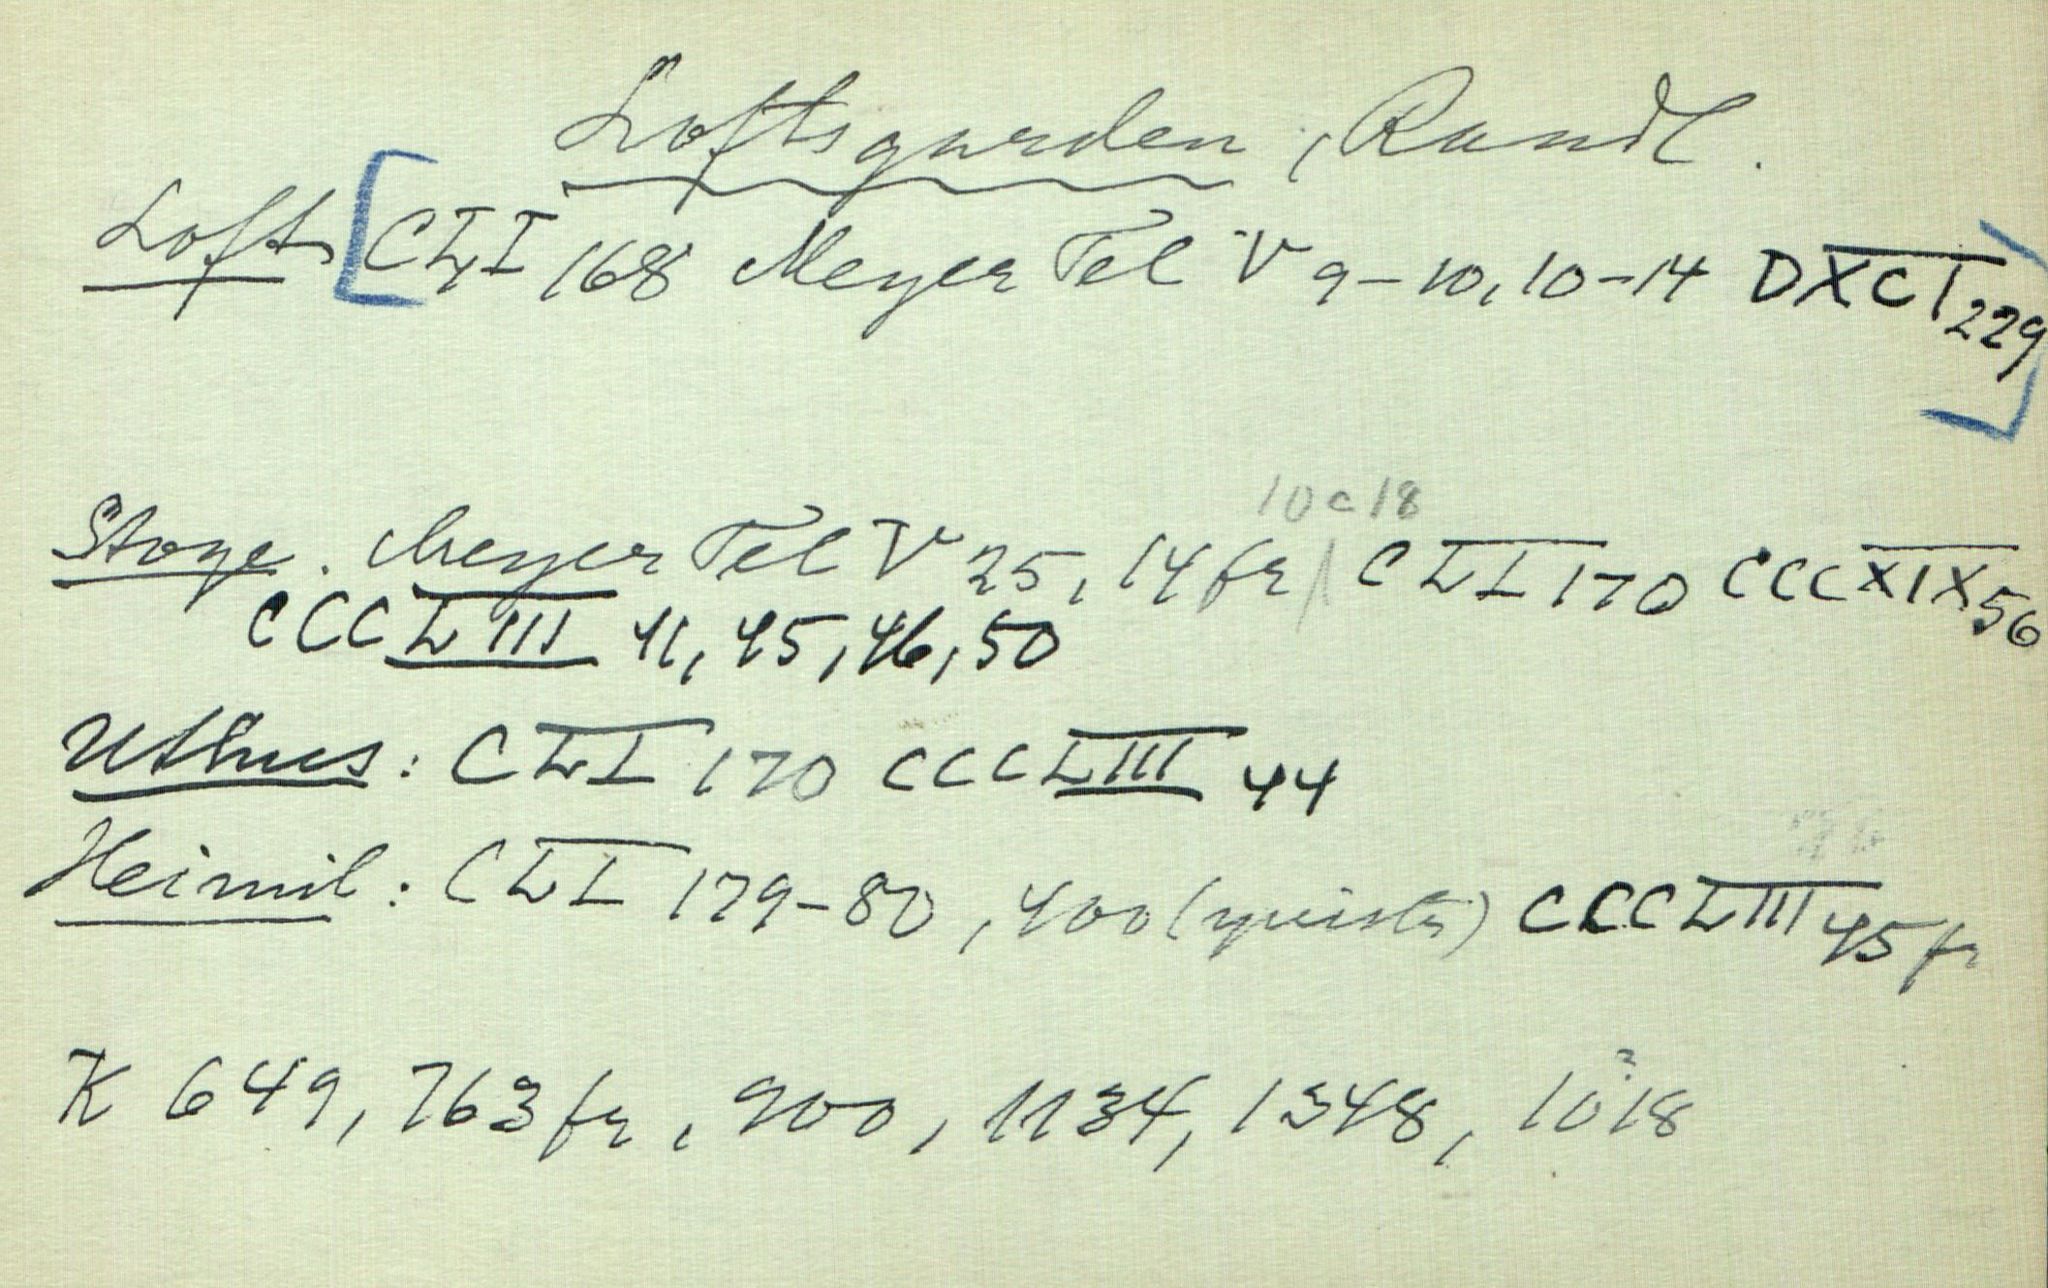 Loftsgarden, Raudl.
Loft [CLI 168 Meyer Tel V 9-10, 10-14 DXCI 229]
10 c 18
Stoge. Meyer Tel V 25, 14 fr / CLI 170 CCCXIX 56
CCCLIII 41, 45, 46, 50
Uthus: CLI 170 CCCLIII 44
Heimil: CLI 179-80, 400 CCCLIII 45 fr
K 649, 763 fr, 900, 1134, 1348, 1018
?